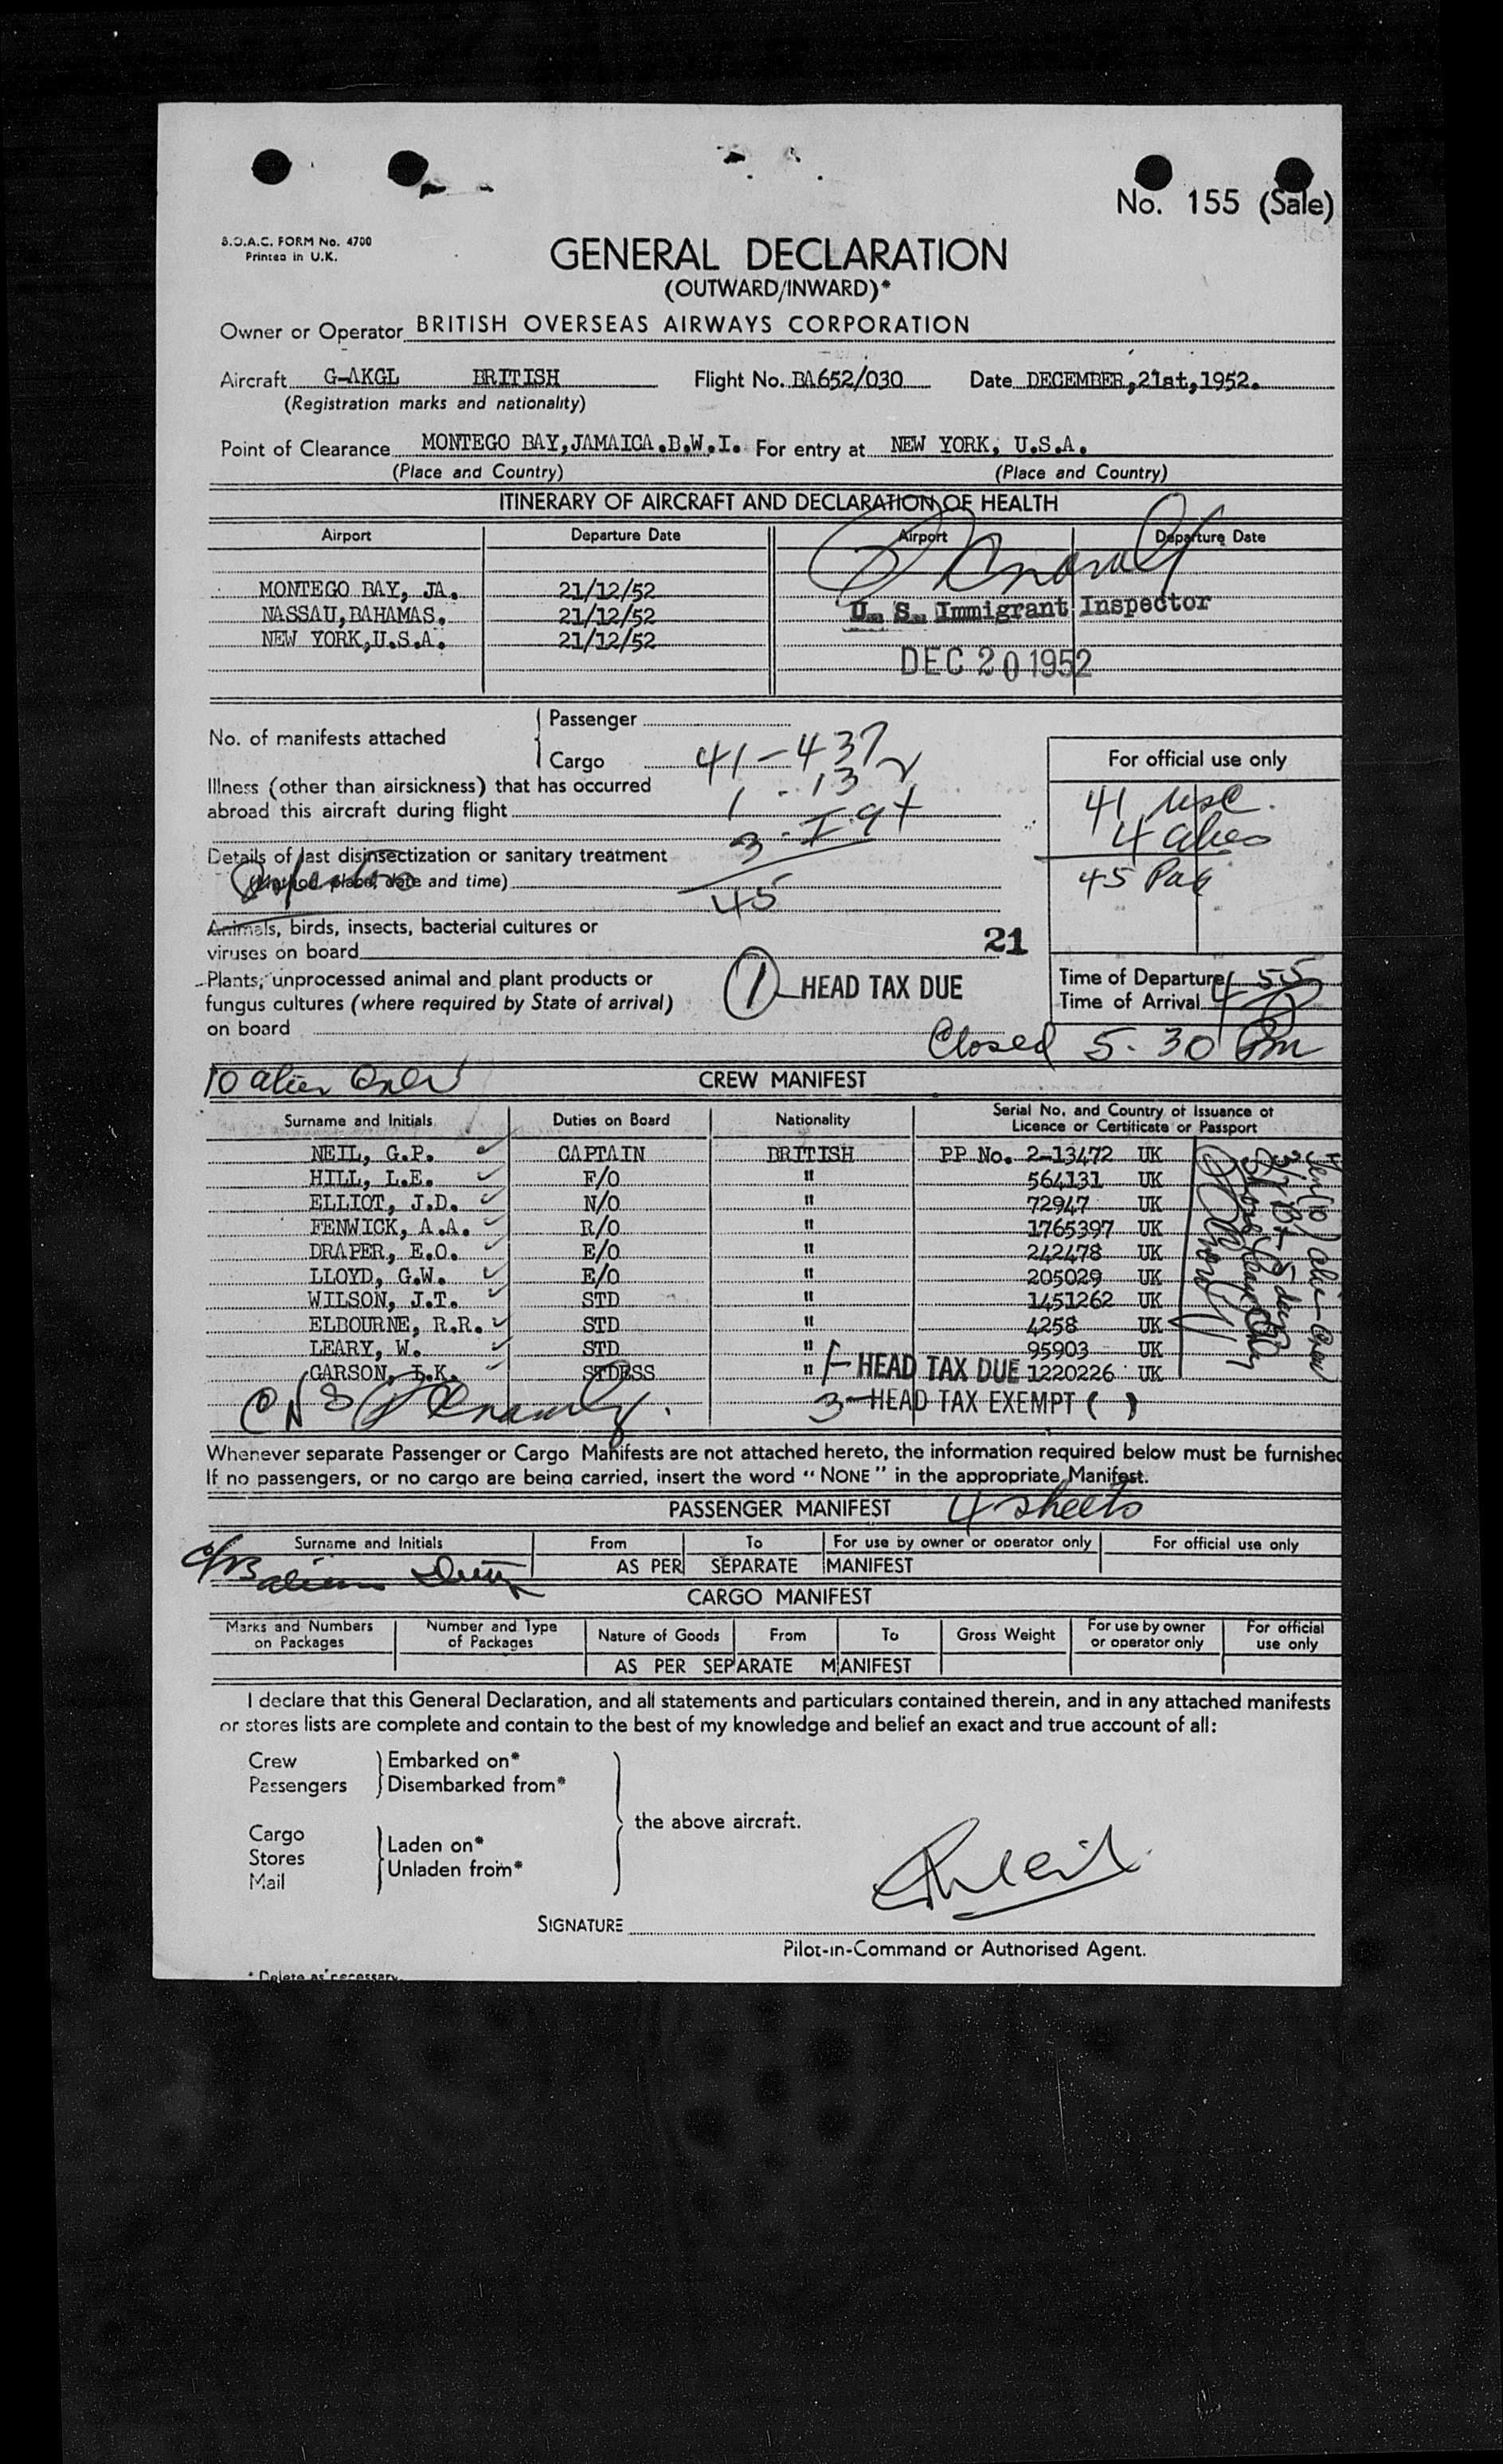 No. 155 (Sale)
B.O.A.C. FORM No. 4700
Printed in U.K.
GENERAL DECLARATION
(OUTWARD/INWARD)*
Owner or Operator BRITISH OVERSEAS AIRWAYS CORPORATION
Aircraft G-AKGL BRITISH Flight No. BA652/030 Date DECEMBER,21st,1952.
(Registration marks and nationality)
Point of Clearance MONTEGO BAY,JAMAICA.B.W.I. For entry at NEW YORK, U.S.A.
(Place and Country) (Place and Country)
ITINERARY OF AIRCRAFT AND DECLARATION OF HEALTH
Airport Departure Date Airport Departure Date
MONTEGO BAY, JA. 21/12/52
NASSAU,BAHAMAS. 21/12/52 U. S. Immigrant Inspector
NEW YORK,U.S.A. 21/12/52
DEC 20 1952
No. of manifests attached { Passenger
Cargo 41-437
For official use only
Illness (other than airsickness) that has occurred 1 - 13
abroad this aircraft during flight 3 -
41 USC.
4 alien
Details of last disinsectization or sanitary treatment
(Method, place, date and time) 45
45 Pax
Animals, birds, insects, bacterial cultures or
viruses on board 21
Plants, unprocessed animal and plant products or
fungus cultures (where required by State of arrival) 1 HEAD TAX DUE
on board
Time of Departure
Time of Arrival 4 55
Closed 5.30 Pm
10 alien Crew CREW MANIFEST
Surname and Initials Duties on Board Nationality Serial No. and Country of Issuance of
Licence or Certificate or Passport
NEIL, G.P. CAPTAIN BRITISH PP No. 2-13472 UK
HILL, L.E. F/O " 564131 UK
ELLIOT, J.D. N/O " 72947 UK
FENWICK, A.A. R/O " 1765397 UK
DRAPER, E.O. E/O " 242478 UK
LLOYD, G.W. E/O " 205029 UK
WILSON, J.T. STD " 1451262 UK
ELBOURNE, R.R. STD " 4258 UK
LEARY, W. STD " 95903 UK
GARSON, L.K. STDESS " 1- HEAD TAX DUE 1220226 UK
3- HEAD TAX EXEMPT ( )
Whenever separate Passenger or Cargo Manifests are not attached hereto, the information required below must be furnished
If no passengers, or no cargo are being carried, insert the word "NONE" in the appropriate Manifest.
PASSENGER MANIFEST 4 sheets
Surname and Initials From To For use by owner or operator only For official use only
AS PER SEPARATE MANIFEST
CARGO MANIFEST
Marks and Numbers on Packages Number and Type of Packages Nature of Goods From To Gross Weight For use by owner or operator only For official use only
AS PER SEPARATE MANIFEST
I declare that this General Declaration, and all statements and particulars contained therein, and in any attached manifests
or stores lists are complete and contain to the best of my knowledge and belief an exact and true account of all:
Crew } Embarked on*
Passengers } Disembarked from*
the above aircraft.
Cargo
Stores } Laden on*
Mail } Unladen from*
SIGNATURE
Pilot-in-Command or Authorised Agent.
* Delete as necessary.